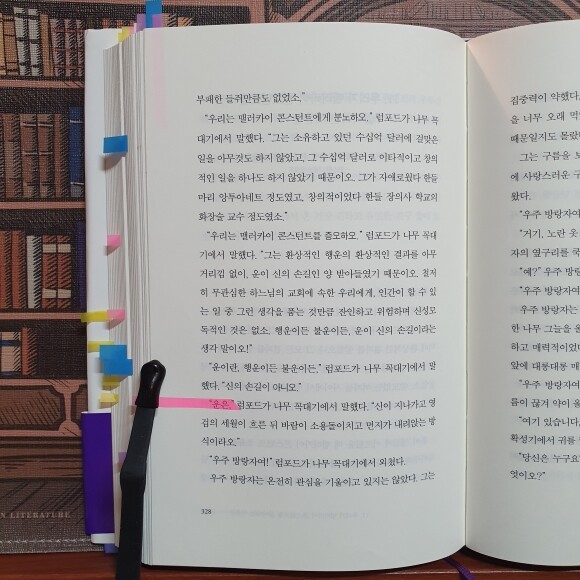 부패한 들쥐만큼도 없었소."
"우리는 맬러카이 콘스턴트에게 분노하오." 럼포드가 나무 꼭
대기에서 말했다. "그는 소유하고 있던 수십억 달러에 걸맞은
일을 아무것도 하지 않았고, 그 수십억 달러로 이타적이고 창의
적인 일을 하나도 하지 않았기 때문이오. 그가 자애로웠다 한들
마리 앙투아네트 정도였고, 창의적이었다 한들 장의사 학교의
화장술 교수 정도였소."
"우리는 맬러카이 콘스턴트를 증오하오." 럼포드가 나무 꼭대
기에서 말했다. "그는 환상적인 행운의 환상적인 결과를 아무
거리낌 없이, 운이 신의 손길인 양 받아들였기 때문이오. 철저
히 무관심한 하느님의 교회에 속한 우리에게, 인간이 할 수 있
는 일 중 그런 생각을 품는 것만큼 잔인하고 위험하며 신성모
독적인 것은 없소. 행운이든 불운이든, 운이 신의 손길이라는
생각 말이오!"
"운이란, 행운이든 불운이든," 럼포드가 나무 꼭대기에서 말
했다. "신의 손길이 아니오."
"운은," 럼포드가 나무 꼭대기에서 말했다. "신이 지나가고 영
겁의 세월이 흐른 뒤 바람이 소용돌이치고 먼지가 내려앉는 방
식이라오."
"우주 방랑자여!" 럼포드가 나무 꼭대기에서 외쳤다.
우주 방랑자는 온전히 관심을 기울이고 있지는 않았다. 그는
328
집중력이 약했다.
을 너무 오래
때문일지도 몰랐
그는 구름을
에 사랑스러운
왔다.
"우주 방랑자여
"거기, 노란 옷
자의 옆구리를
"예?" 우주 방랑
"우주 방랑자여
우주 방랑자는
한 나무 그늘을
하고 매력적이었다
앞에 대롱대롱
"우주 방랑자여
름이 끊겨 약이
"여기 있습니다
확성기에서 귀를
"당신은 누구요
엇이오?"
N LITERATURE